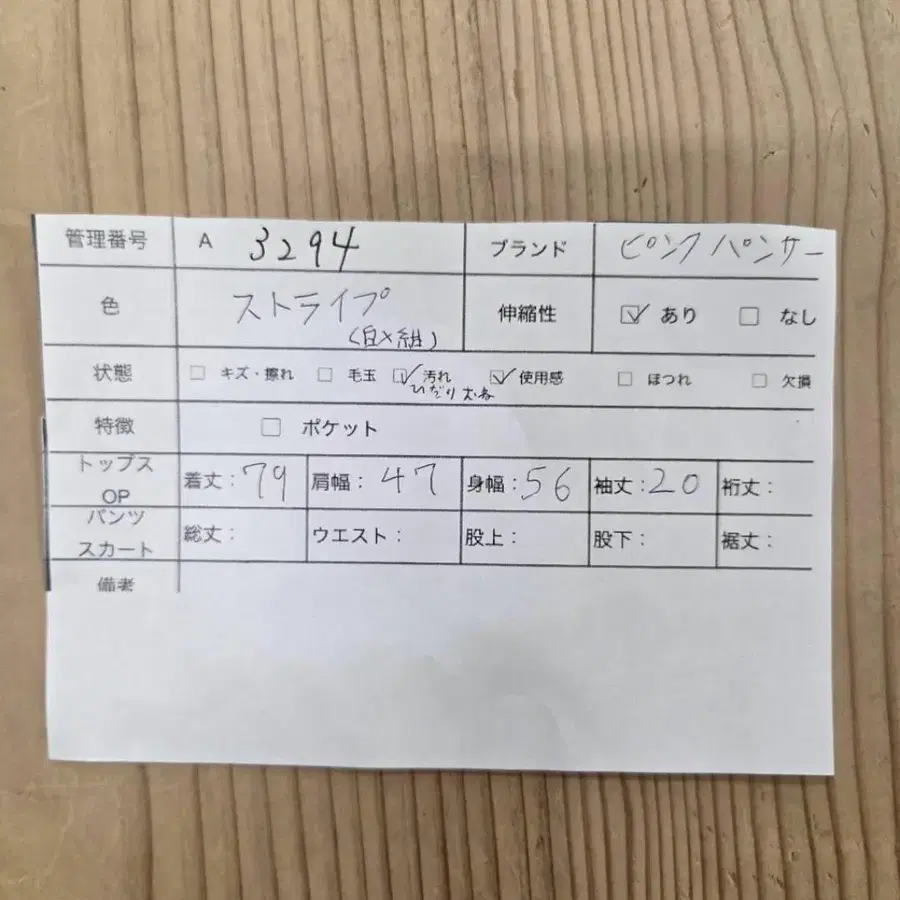 管理番号 A 3294 ブランド ピンクパンサー
色 ストライプ 伸縮性 ☑ あり ☐ なし
(白×紺)
状態 ☐ キズ・擦れ ☐ 毛玉 ☑ 汚れ ☑ 使用感 ☐ ほつれ ☐ 欠損
ひだり
特徴 ☐ ポケット
トップス OP 着丈:79 肩幅:47 身幅:56 袖丈:20 裄丈:
パンツ スカート 総丈: ウエスト: 股上: 股下: 裾丈:
備考